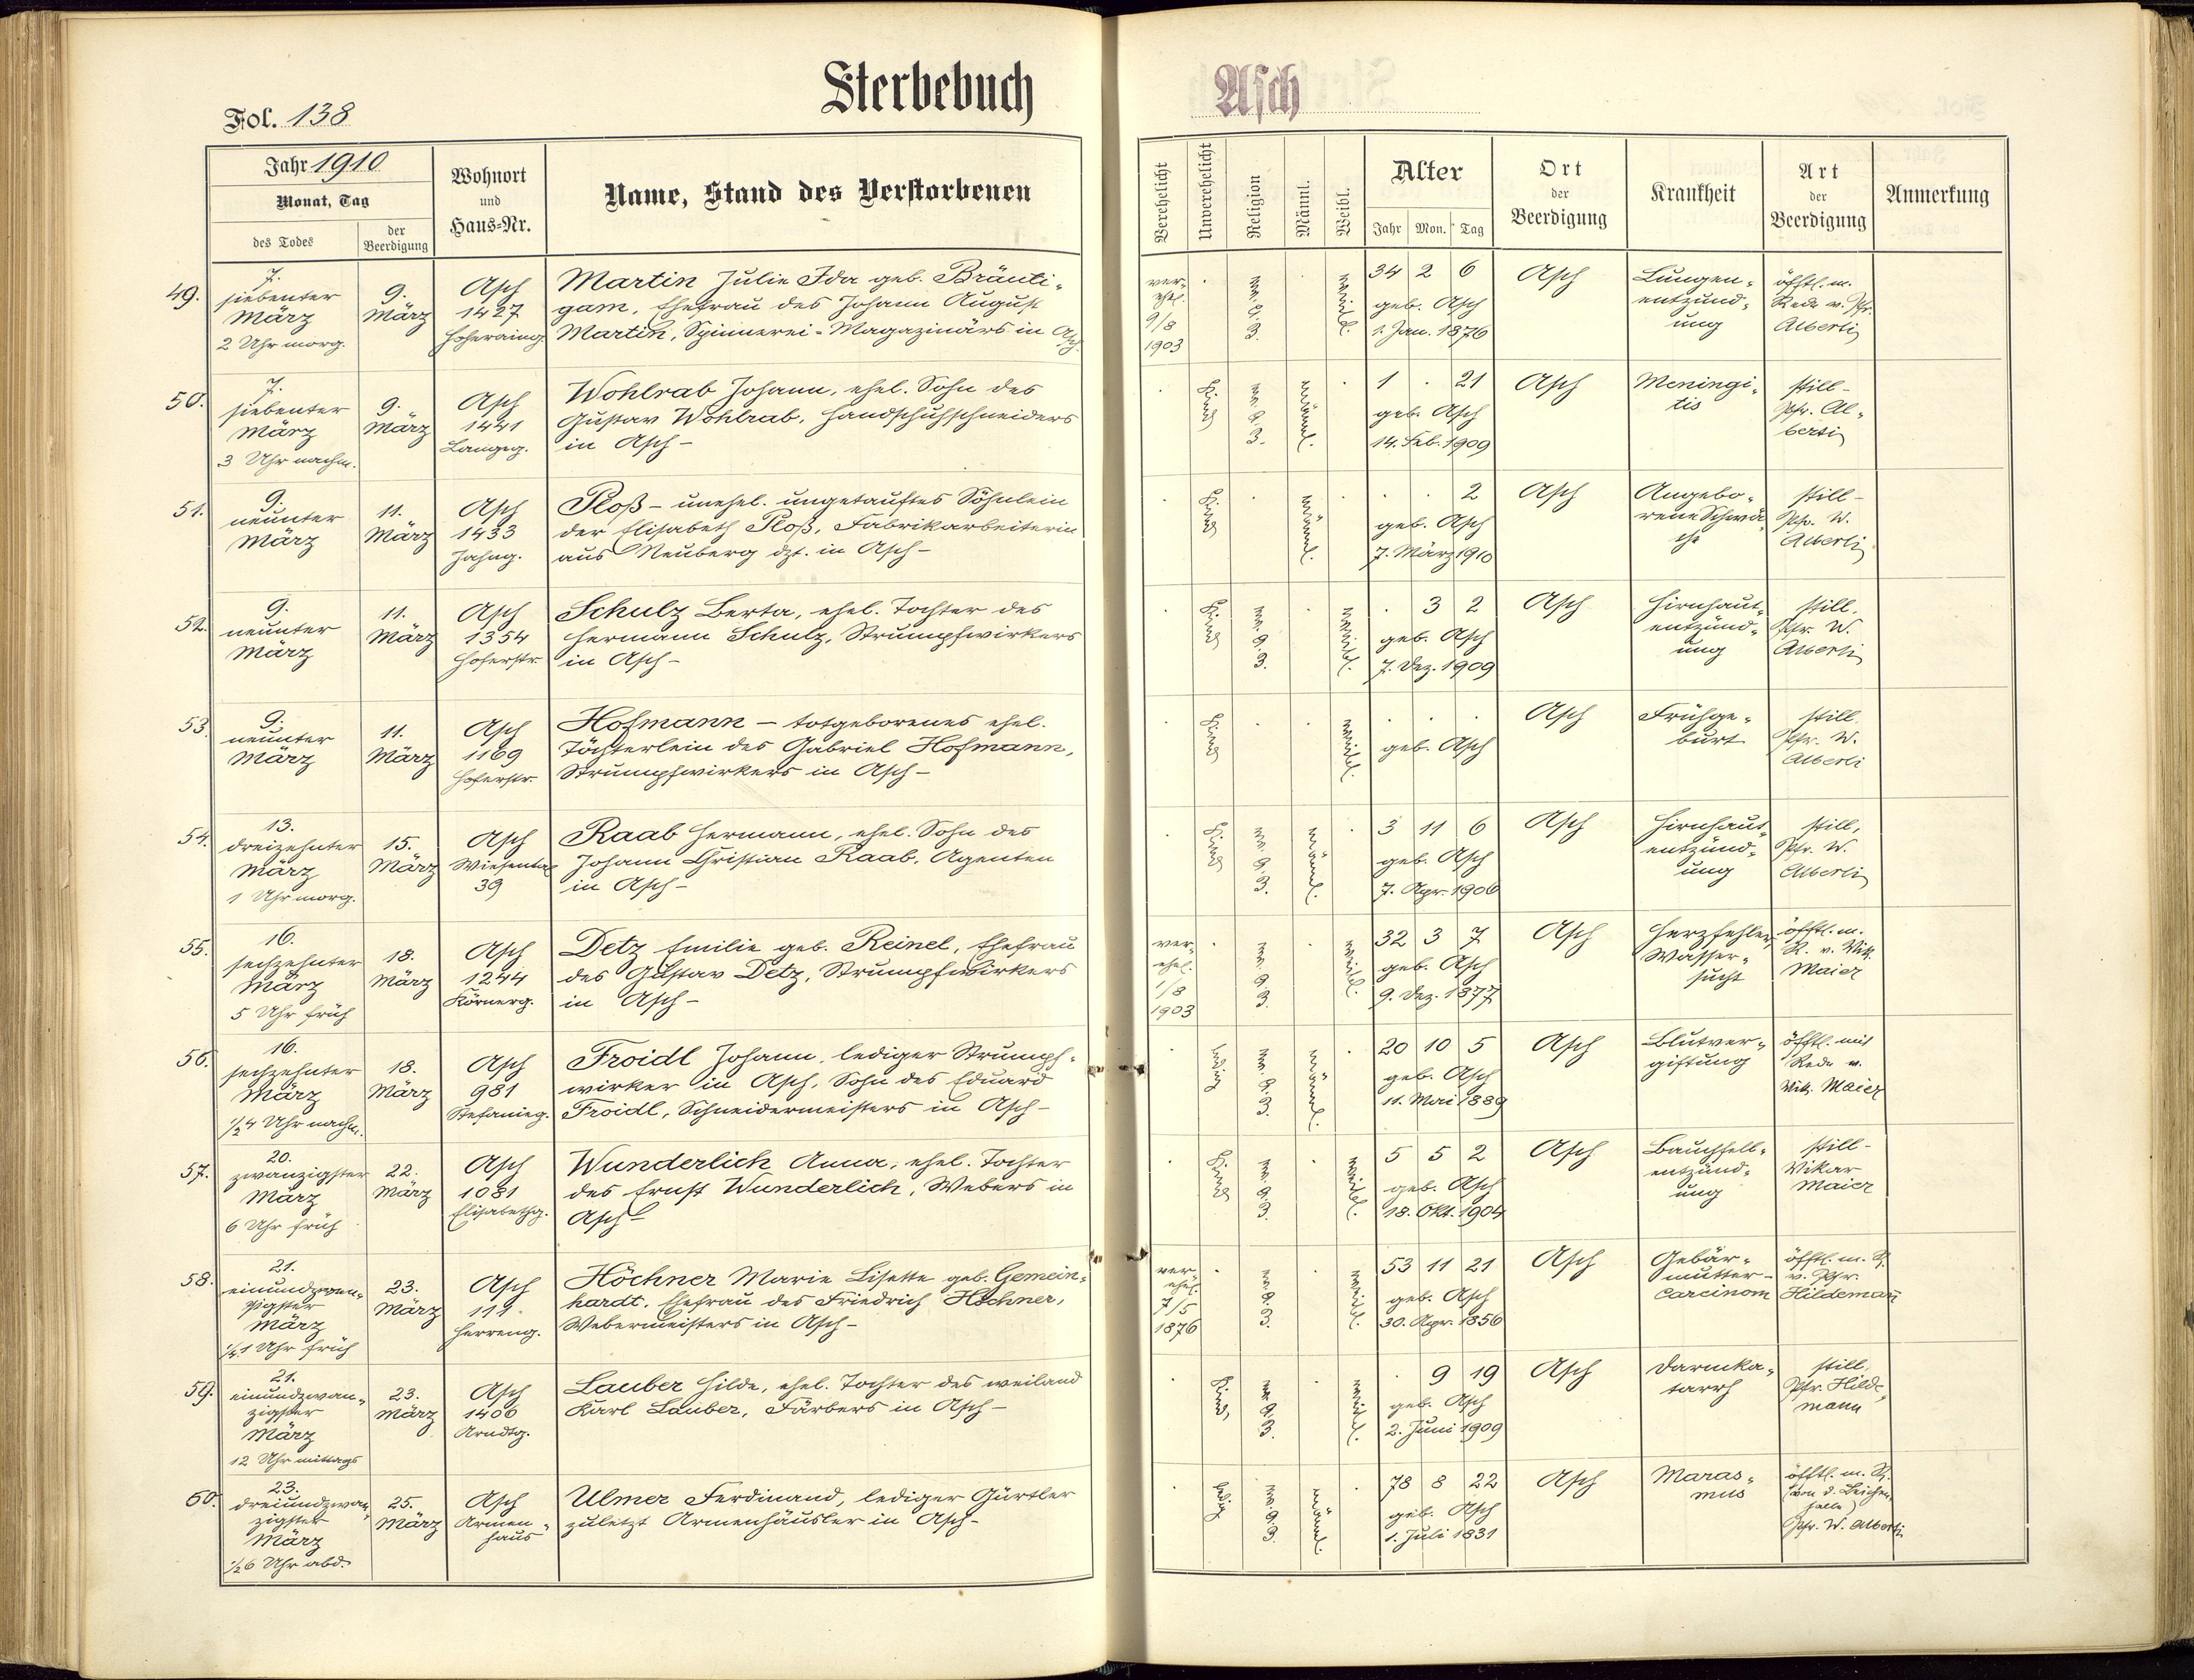 Sterbebuch
Asch
Fol. 138
Jahr 1910
Monat, Tag
des Todes
der
Beerdigung
Wohnort
und
Haus-Nr.
Name, Stand des Verstorbenen
Verehelicht
Unverehelicht
Religion
Männl.
Weibl.
Alter
Jahr Mon. Tag
Ort
der
Beerdigung
Krankheit
Art
der
Beerdigung
Anmerkung
49.
7.
siebenter
März
2 Uhr morg.
9.
März
Asch
1427
Martin Julie Ida geb. Bräuti-
gam, Ehefrau des Johann August
Martin, Spinnerei-Magazinärs in Asch.
ver-
ehel.
9/8
1903
ev.
A.
B.
weibl.
34 2 6
geb. Asch
1. Jan. 1876
Asch
Lungen-
entzünd-
ung
öfftl. m.
Rede v. Pfr.
Alberti
50.
7.
siebenter
März
3 Uhr nachm.
9.
März
Asch
1441
Langeg.
Wohlrab Johann, ehel. Sohn des
Gustav Wohlrab, Handschuhschneiders
in Asch-
Kind
ev.
A.
B.
männl.
1 . 21
geb. Asch
14. Feb. 1909
Asch
Meningi-
tis
still-
Pfr. Al-
berti
51.
9.
neunter
März
11.
März
Asch
1433
Jahng.
Ploß - unehel. ungetauftes Söhnlein
der Elisabeth Ploß, Fabrikarbeiterin
aus Neuberg dzt. in Asch-
Kind
männl.
. . 2
geb. Asch
7. März 1910
Asch
Angebo-
rene Schwä-
che
still-
Pfr. W.
Alberti
52.
9.
neunter
März
11.
März
Asch
1354
Hoferstr.
Schulz Berta, ehel. Tochter des
Hermann Schulz, Strumpfwirkers
in Asch-
Kind
ev.
A.
B.
weibl.
. 3 2
geb. Asch
7. Dez. 1909
Asch
Hirnhaut-
entzünd-
ung
still,
Pfr. W.
Alberti
53.
9.
neunter
März
11.
März
Asch
1169
Hoferstr.
Hofmann - totgeborenes ehel.
Töchterlein des Gabriel Hofmann,
Strumpfwirkers in Asch-
Kind
weibl.
. . .
geb. Asch
Asch
Frühge-
burt
still.
Pfr. W.
Alberti
54.
13.
dreizehnter
März
1 Uhr morg.
15.
März
Asch
Wiesental
39
Raab Hermann, ehel. Sohn des
Johann Christian Raab, Agenten
in Asch-
Kind
ev.
A.
B.
männl.
3 11 6
geb. Asch
7. Apr. 1906
Asch
Hirnhaut-
entzünd-
ung
still,
Pfr. W.
Alberti
55.
16.
sechzehnter
März
5 Uhr früh
18.
März
Asch
1244
Körnerg.
Detz Emilie geb. Reinel, Ehefrau
des Gustav Detz, Strumpfwirkers
in Asch-
ver-
ehel.
1/8
1903
ev.
A.
B.
weibl.
32 3 7
geb. Asch
9. Dez. 1877
Asch
Herzfehler,
Wasser-
sucht
öfftl. m.
R. v. Vik.
Maier
56.
16.
sechzehnter
März
1/2 4 Uhr nachm.
18.
März
Asch
981
Stefanieg.
Froidl Johann, lediger Strumpf-
wirker in Asch, Sohn des Eduard
Froidl, Schneidermeisters in Asch-
ledig
ev.
A.
B.
männl.
20 10 5
geb. Asch
11. Mai 1889
Asch
Blutver-
giftung
öfftl. mit
Rede v.
Vik. Maier
57.
20.
zwanzigster
März
6 Uhr früh
22.
März
Asch
1081
Elisabethg.
Wunderlich Anna, ehel. Tochter
des Ernst Wunderlich, Webers in
Asch-
Kind
ev.
A.
B.
weibl.
5 5 2
geb. Asch
18. Okt. 1904
Asch
Bauchfell-
entzünd-
ung
still-
Vikar
Maier
58.
21.
einundzwan-
zigster
März
1/4 1 Uhr früh
23.
März
Asch
111
Herreng.
Höchner Marie Lisette geb. Gemein-
hardt, Ehefrau des Friedrich Höchner,
Webermeisters in Asch-
ver-
ehel.
7/5
1876
ev.
A.
B.
weibl.
53 11 21
geb. Asch
30. Apr. 1856
Asch
Gebär-
mutter-
carcinom
öfftl. m. R.
v. Pfr.
Hildemañ
59.
21.
einundzwan-
zigster
März
12 Uhr mittags
23.
März
Asch
1406
Arndtg.
Lauber Hilde, ehel. Tochter des weiland
Karl Lauber, Färbers in Asch-
Kind
ev.
A.
B.
weibl.
. 9 19
geb. Asch
2. Juni 1909
Asch
Darmka-
tarrh
still.
Pfr. Hilde-
mann
60.
23.
dreiundzwan-
zigster
März
1/2 6 Uhr abd.
25.
März
Asch
Armen-
haus
Ulmer Ferdinand, lediger Gürtler
zuletzt Armenhäusler in Asch-
ledig
ev.
A.
B.
männl.
78 8 22
geb. Asch
1. Juli 1831
Asch
Maras-
mus
öfftl. m. R.
(von d. Leichen-
halle)
Pfr. W. Alberti